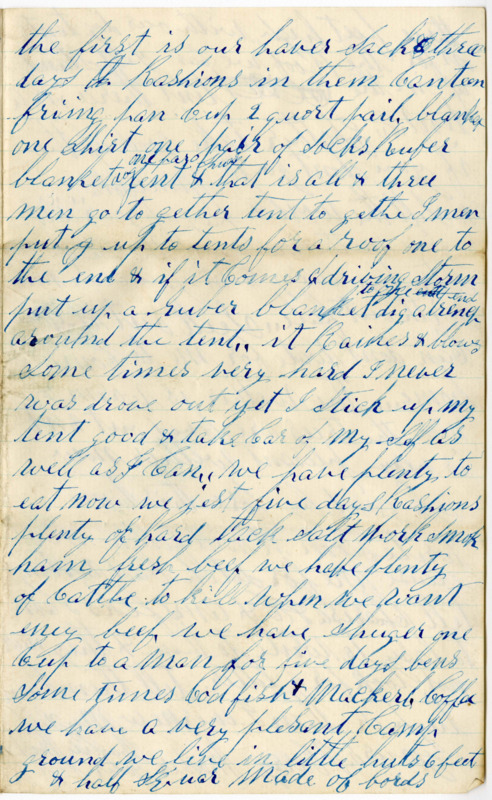 the first is our haver sack & three
days Rashions in them Canteen
friing pan Cup 2 quort pail, blanket
one Shirt one pair of Socks Ruber
blanket
tent & that is all & three
men go to gether tent to gethe 3 men
put up to tents for a roof one to
the end & if it Comes a driving Storm
put up a ruber blanket to the end
dig a trench
around the tent,, it Raines & blows
Some times very hard I never
was drove out yet I Stick up my
tent good & take Car of my Self as
well as I Can,, we have plenty to
eat now we jest five days Rashions
plenty of hard tack Salt Pork Smok
ham fresh beef we have plenty
of Cattle to kill when we want
eney beef we have Shuger one
Cup to a man for five days bens
Some times Cod fish & Mackerl, Coffee
we have a very plesant Camp
ground we live in little huts 6 feet
& half Squar made of bords